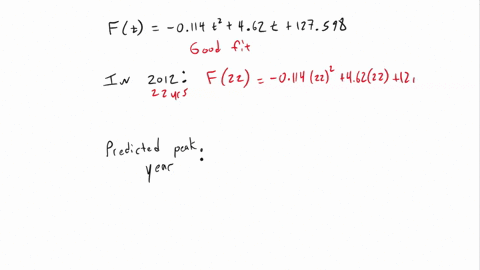 F(t) = -0.114 t² + 4.62 t + 127.598
Good fit
IN 2012: F(22) = -0.114(22)² + 4.62(22) + 12
22 yrs
Predicted peak:
year